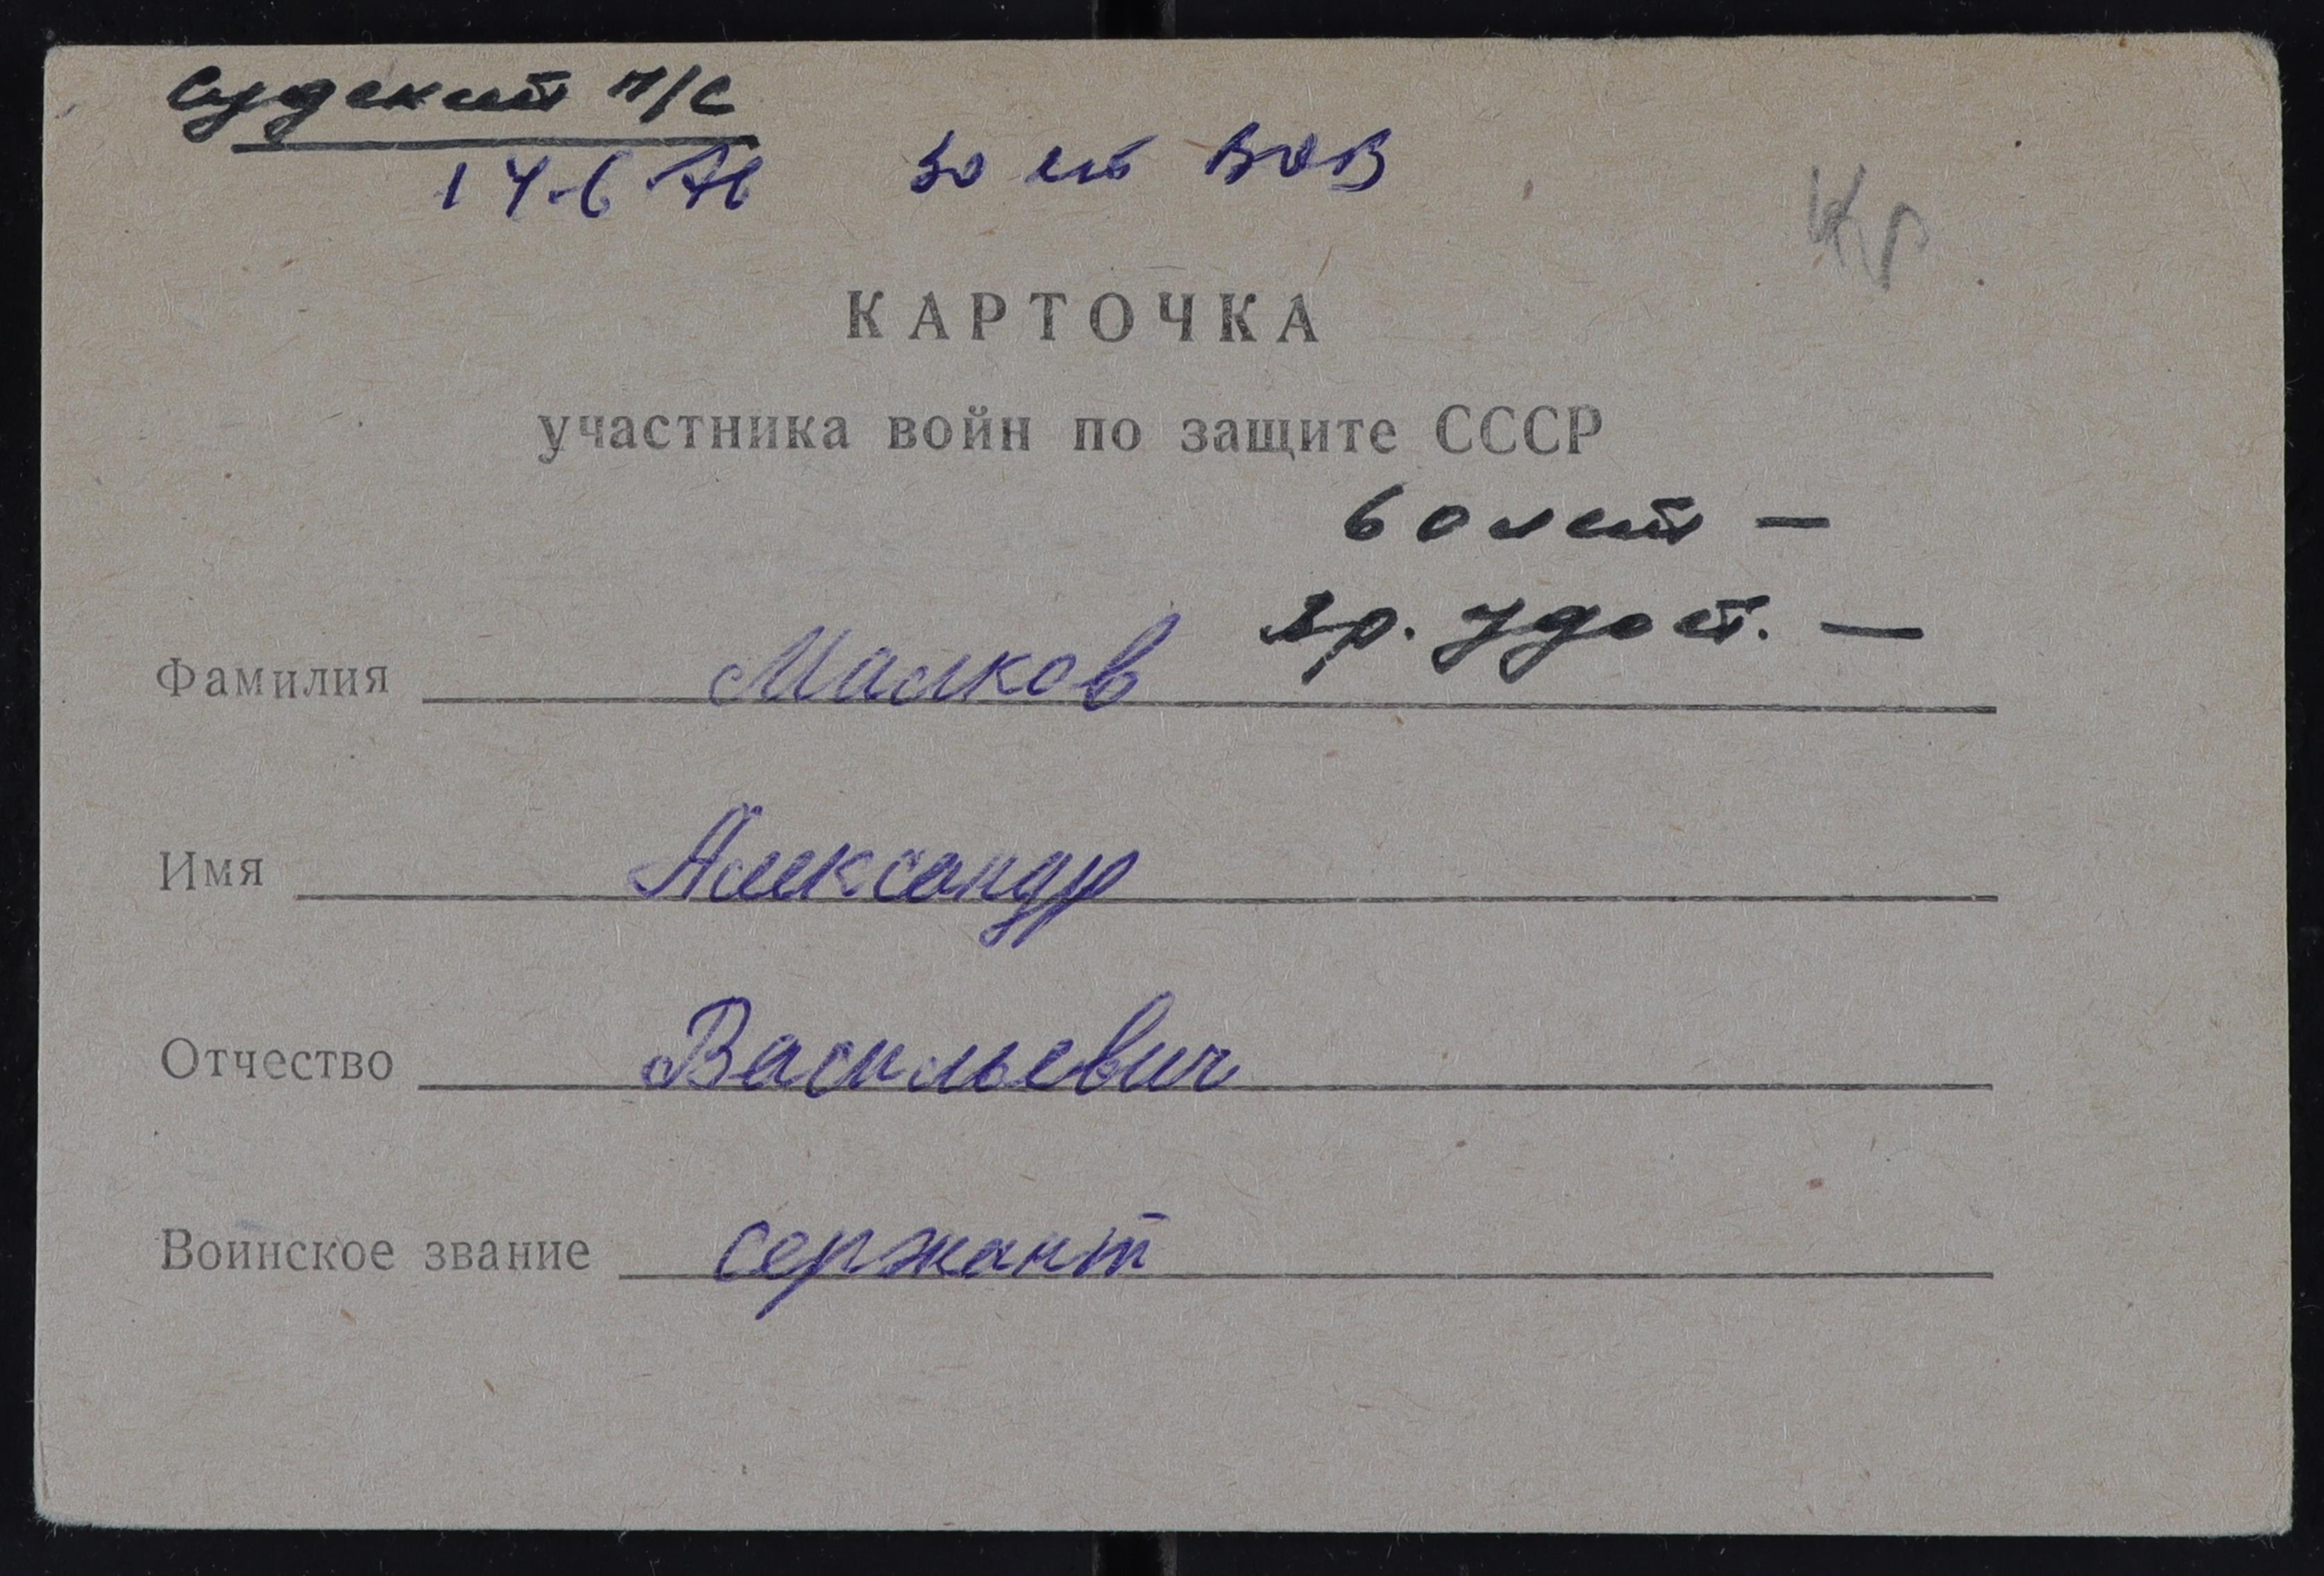 Судский п/с
14.6.76 30 лет ВОВ
Кр
КАРТОЧКА
участника войн по защите СССР
60 лет —
гр. удост. —
Фамилия Малков
Имя Александр
Отчество Васильевич
Воинское звание сержант